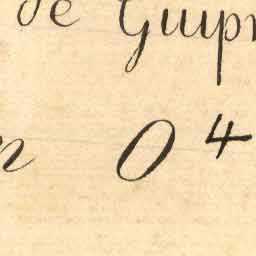 de Guip
n 0 4